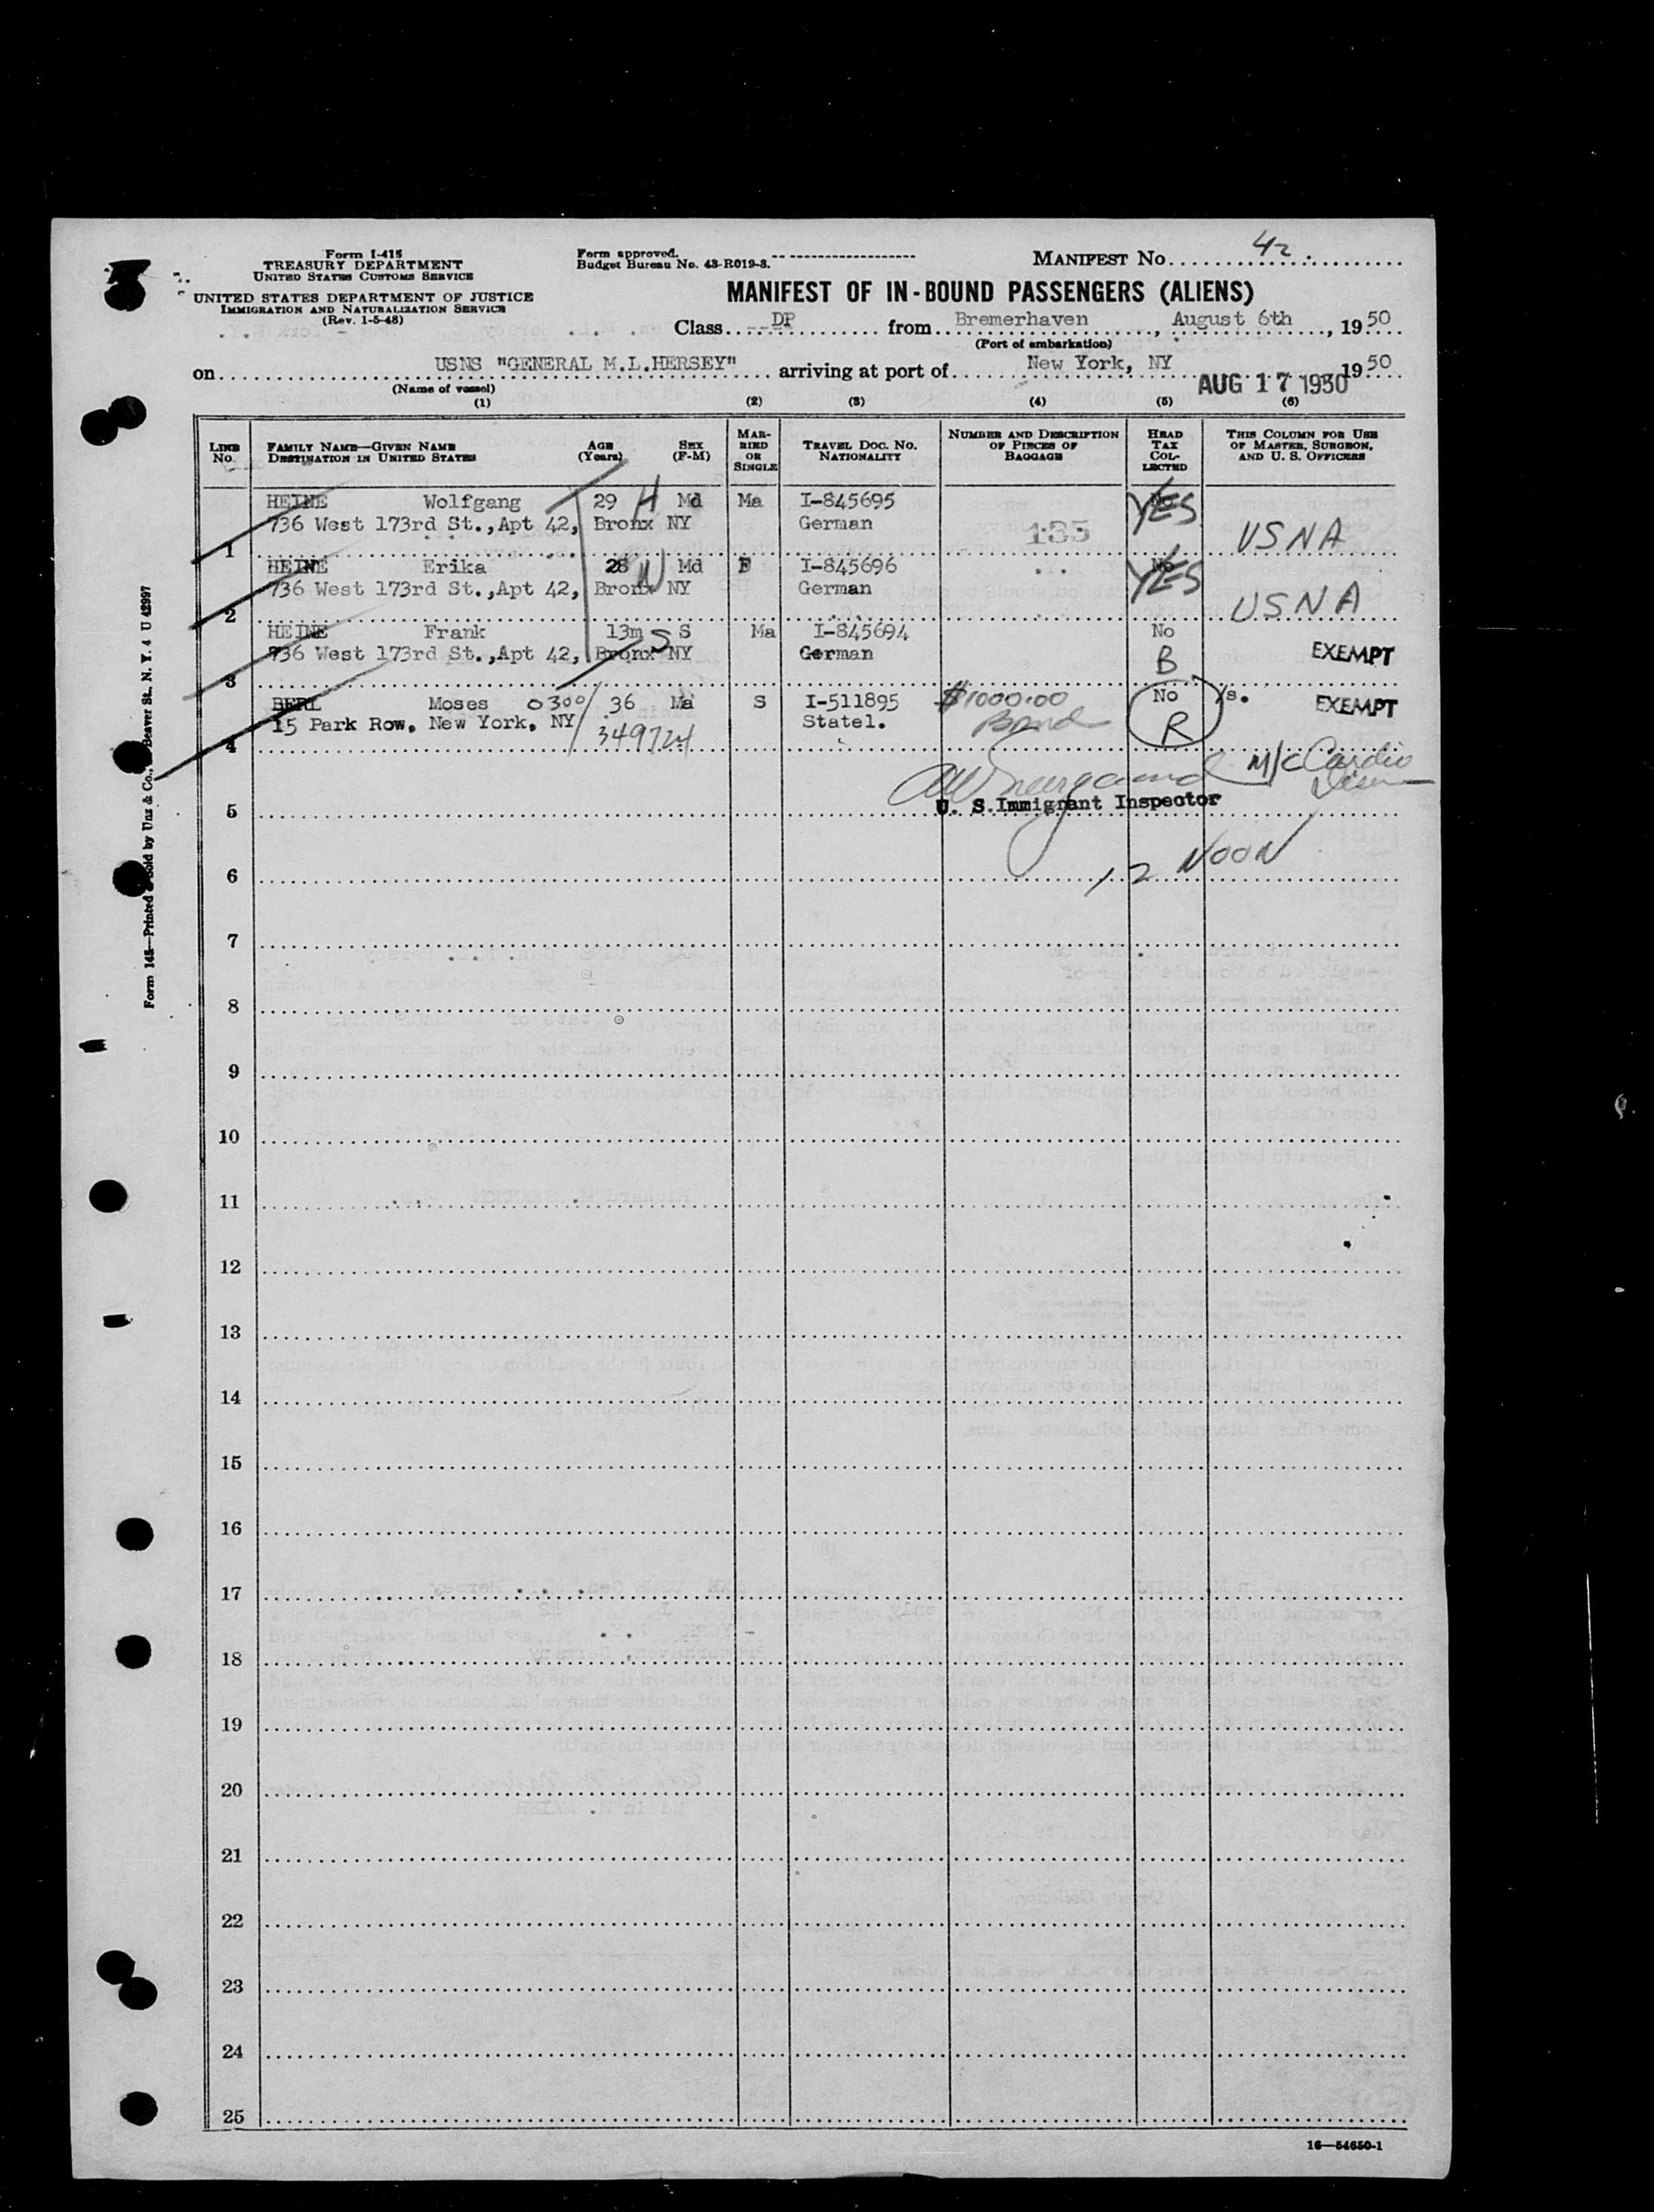 Form I-415
TREASURY DEPARTMENT
UNITED STATES CUSTOMS SERVICE
UNITED STATES DEPARTMENT OF JUSTICE
IMMIGRATION AND NATURALIZATION SERVICE
(Rev. 1-5-48)
Form approved.
Budget Bureau No. 43-R019-3.
MANIFEST No. 42
MANIFEST OF IN-BOUND PASSENGERS (ALIENS)
Class DP from Bremerhaven, August 6th, 1950
(Port of embarkation)
on USNS "GENERAL M.L.HERSEY" arriving at port of New York, NY 1950
(Name of vessel)
AUG 17 1950
(1) (2) (3) (4) (5) (6)
LINE No. FAMILY NAME—GIVEN NAME DESTINATION IN UNITED STATES AGE (Years) SEX (F-M) MARRIED OR SINGLE TRAVEL DOC. NO. NATIONALITY NUMBER AND DESCRIPTION OF PIECES OF BAGGAGE HEAD TAX COLLECTED THIS COLUMN FOR USE OF MASTER, SURGEON, AND U. S. OFFICERS
HEINE Wolfgang 29 H Md Ma I-845695 No YES
736 West 173rd St.,Apt 42, Bronx NY German 135 USNA
1
HEINE Erika 28 W Md F I-845696 No YES
736 West 173rd St.,Apt 42, Bronx NY German USNA
2
HEINE Frank 13m S S Ma I-845694 No
736 West 173rd St.,Apt 42, Bronx NY German B EXEMPT
3
BERL Moses 0300/ 36 Ma S I-511895 $1000.00 No /s. EXEMPT
15 Park Row, New York, NY 349724 Statel. Bond R
4
M/C Cardio
U. S. Immigrant Inspector
5
12 NOON
6
7
8
9
10
11
12
13
14
15
16
17
18
19
20
21
22
23
24
25
16—54650-1